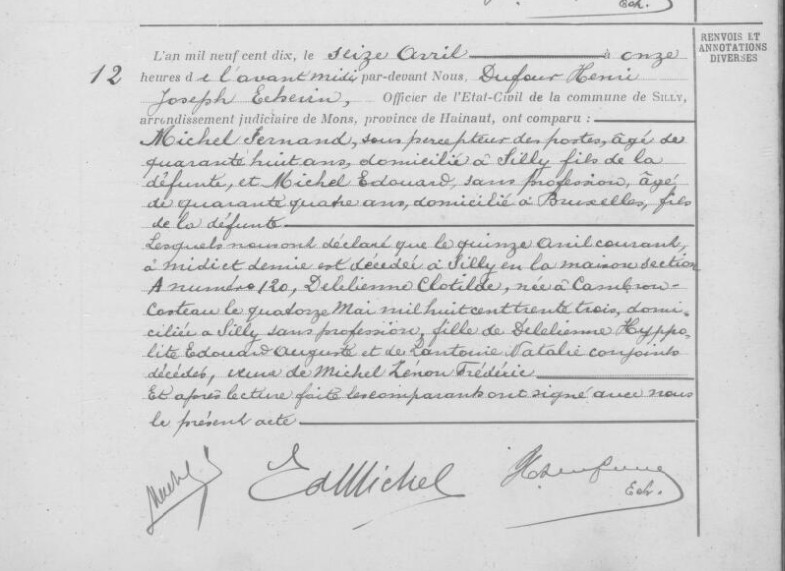 Ech.
RENVOIS ET
ANNOTATIONS
DIVERSES
12
L'an mil neuf cent dix, le seize Avril à onze
heures de l'avant midi par-devant Nous, Dufour Henri
Joseph Echevin, Officier de l'Etat-Civil de la commune de SILLY,
arrondissement judiciaire de Mons, province de Hainaut, ont comparu :
Michel Fernand, sous percepteur des postes, âgé de
quarante huit ans, domicilié à Silly fils de la
défunte, et Michel Edouard, sans profession, âgé
de quarante quatre ans, domicilié à Bruxelles, fils
de la défunte
Lesquels nous ont déclaré que le quinze avril courant,
à midi et demie est décédée à Silly en la maison section
A numéro 120, Delelienne Clotilde, née à Cambron-
Casteau le quatorze Mai mil huit cent trente trois, domi-
ciliée à Silly sans profession, fille de Delelienne Hyppo-
lite Edouard Auguste et de Lantoine Natalie conjoints
décédés, veuve de Michel Zénon Frédéric
Et après lecture faite les comparants ont signé avec nous
le présent acte
Michel
Ed Michel
Ech.